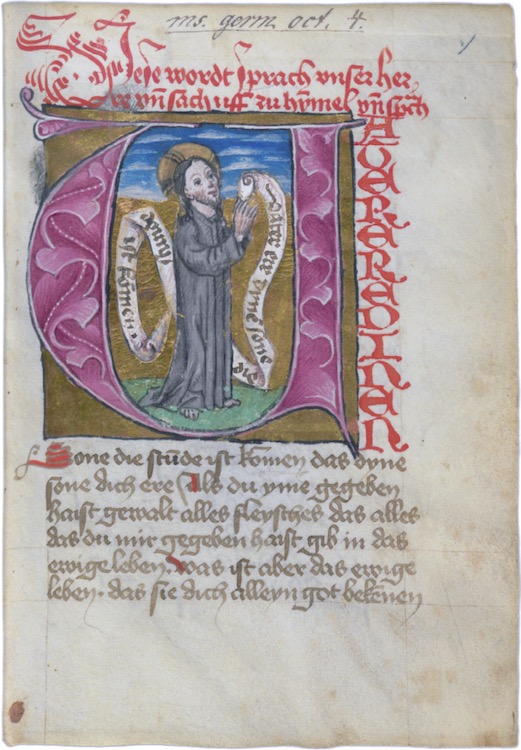 ms. germ. oct. 4.
1
Diese wordt sprach vnser her
re vn̄ sach vff zu hymel vn̄ sp̄ch
V
ATEREREDINEN
vater ere dyne sone die
stunde ist kōmen
Sone die stūde ist kōmen das dyne
sone dich ere Als du yme gegeben
haist gewalt alles fleysches das alles
das du mir gegeben haist gib in das
ewige leben. was ist aber das ewige
leben. das sie dich alleyn got bekēnen